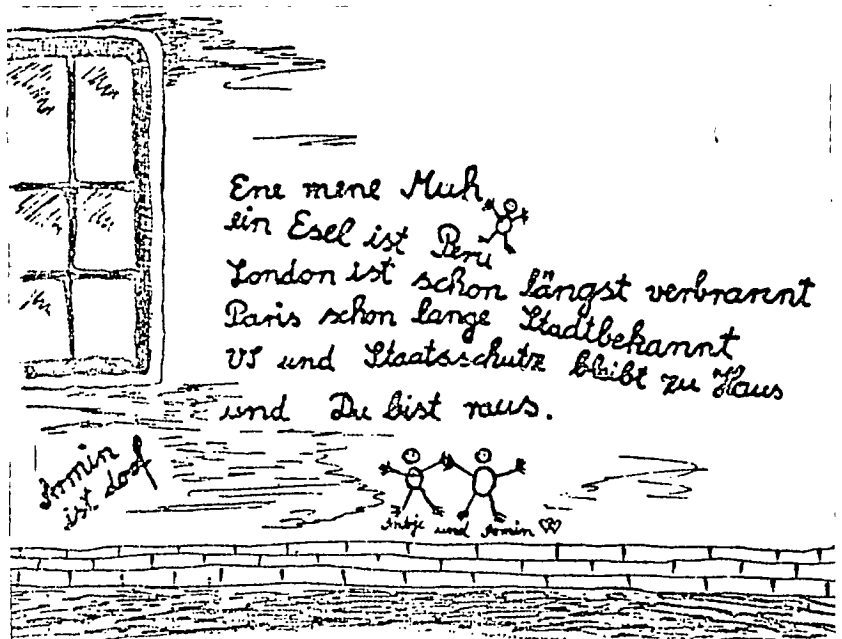 Ene mene Muh,
ein Esel ist Peru
London ist schon längst verbrannt
Paris schon lange Stadtbekannt
VS und Staatsschutz bleibt zu Haus
und Du bist raus.
Armin
ist doof
Antje und Armin